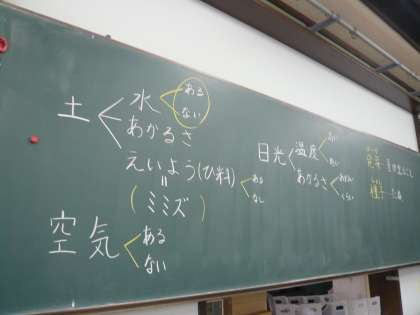 土
水
ある
ない
あかるさ
えいよう(ひ料)
ある
なし
=
(ミミズ)
空気
ある
ない
日光
温度
あかるさ
発芽
種子